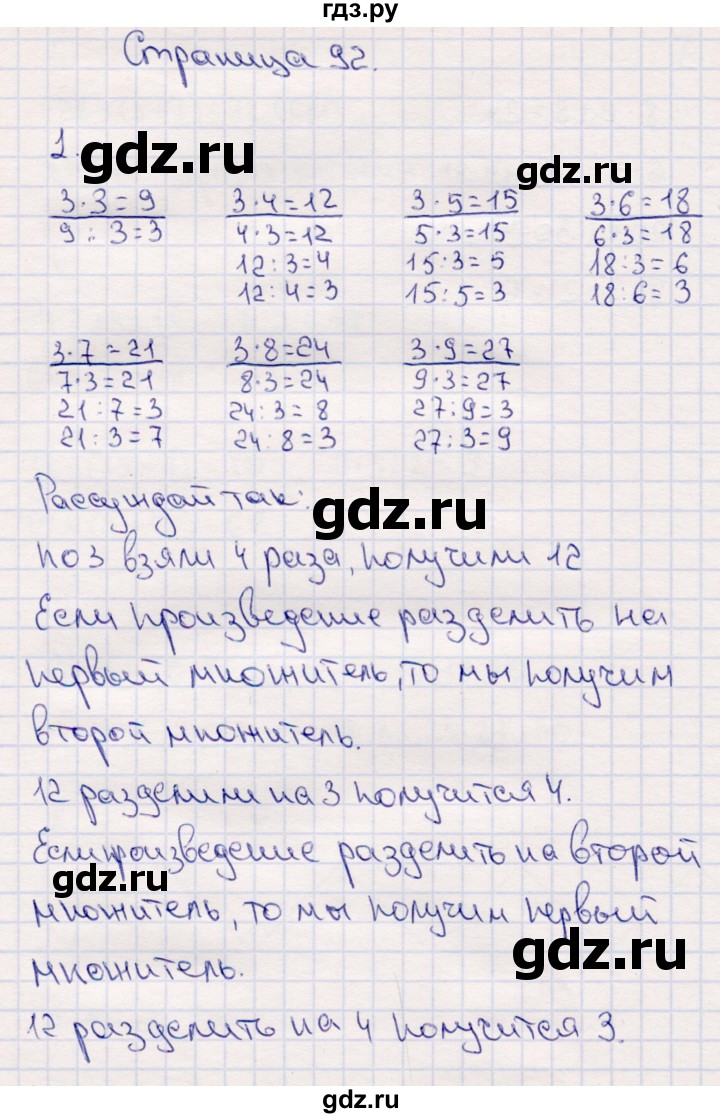 гдз.ру
Страница 92.
1.
gdz.ru gdz.ru
3·3=9 3·4=12 3·5=15 3·6=18
9:3=3 4·3=12 5·3=15 6·3=18
12:3=4 15:3=5 18:3=6
12:4=3 15:5=3 18:6=3
3·7=21 3·8=24 3·9=27
7·3=21 8·3=24 9·3=27
21:7=3 24:3=8 27:9=3
21:3=7 24:8=3 27:3=9
Рассуждай так:
gdz.ru
по 3 взяли 4 раза, получили 12
Если произведение разделить на
первый множитель, то мы получим
второй множитель.
12 разделили на 3 получится 4.
Если произведение разделить на второй
gdz.ru
множитель, то мы получим первый
gdz.ru
множитель.
12 разделить на 4 получится 3.
gdz.ru